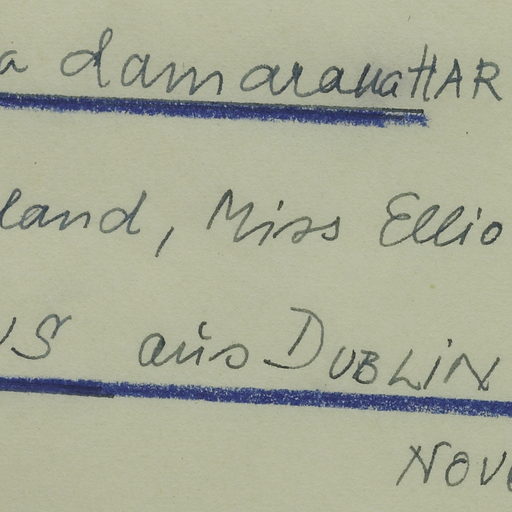 a damarana HAR
land, Miss Ellio
US aus DUBLIN
NOVE